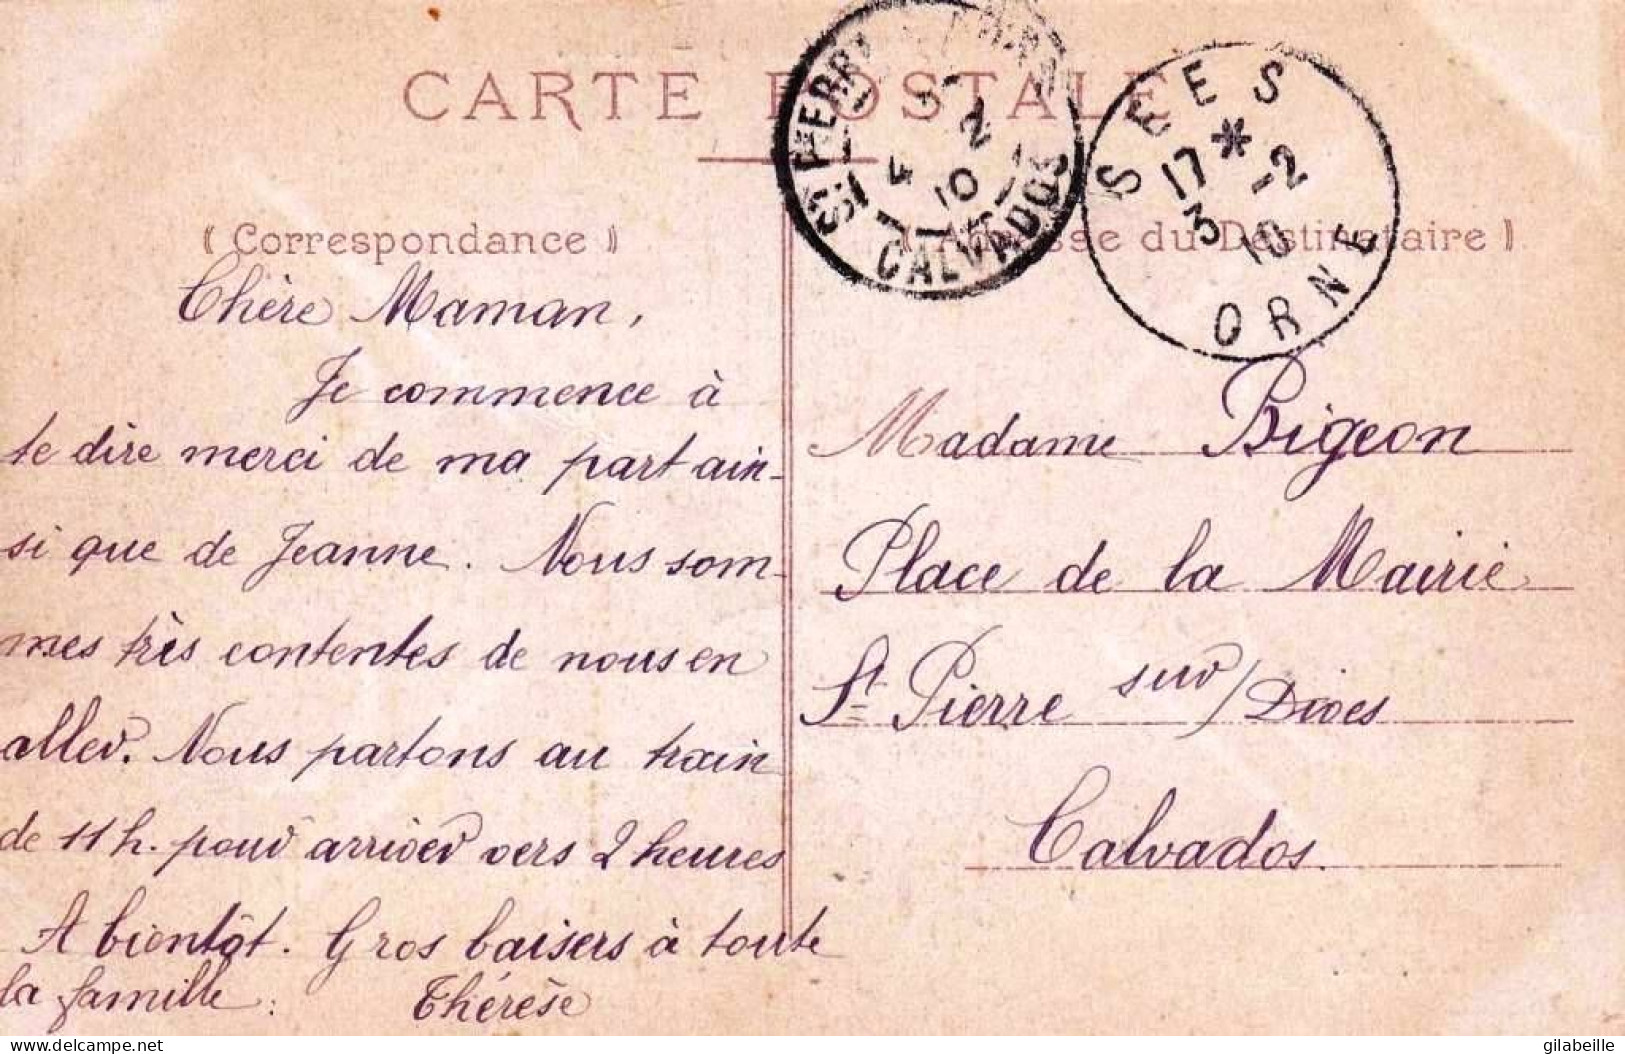 CARTE POSTALE
ST PIERRE
2
4
10
CALVADOS
SEES
17 *
3 -2
10
ORNE
( Correspondance )
Adresse du Destinataire )
Chère Maman,
Je commence à
te dire merci de ma part ain-
si que de Jeanne. Nous som-
mes très contentes de nous en
aller. Nous partons au train
de 11 h. pour arriver vers 2 heures
A bientôt. Gros baisers à toute
la famille.
Thérèse
Madame Bigeon
Place de la Mairie
St Pierre sur/Dives
Calvados.
delcampe.net
gilabeille